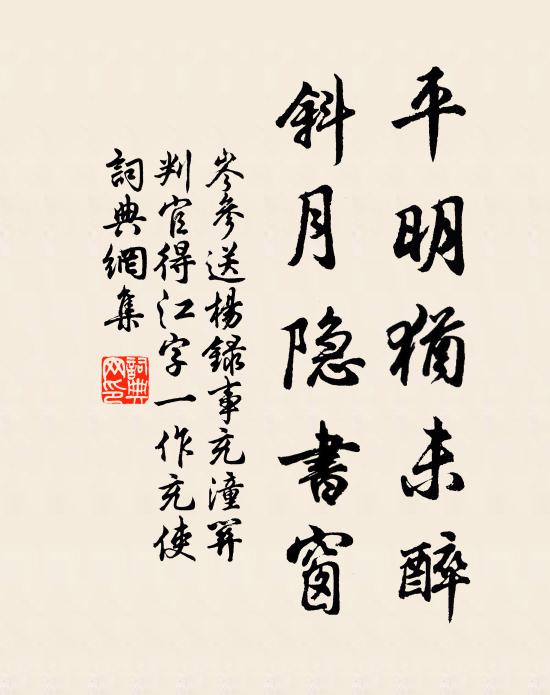 平明猶未醉
斜月隐書窗
岑參送楊録事充潼關
判官得江字一作充使
詞典網集
詞典
网印